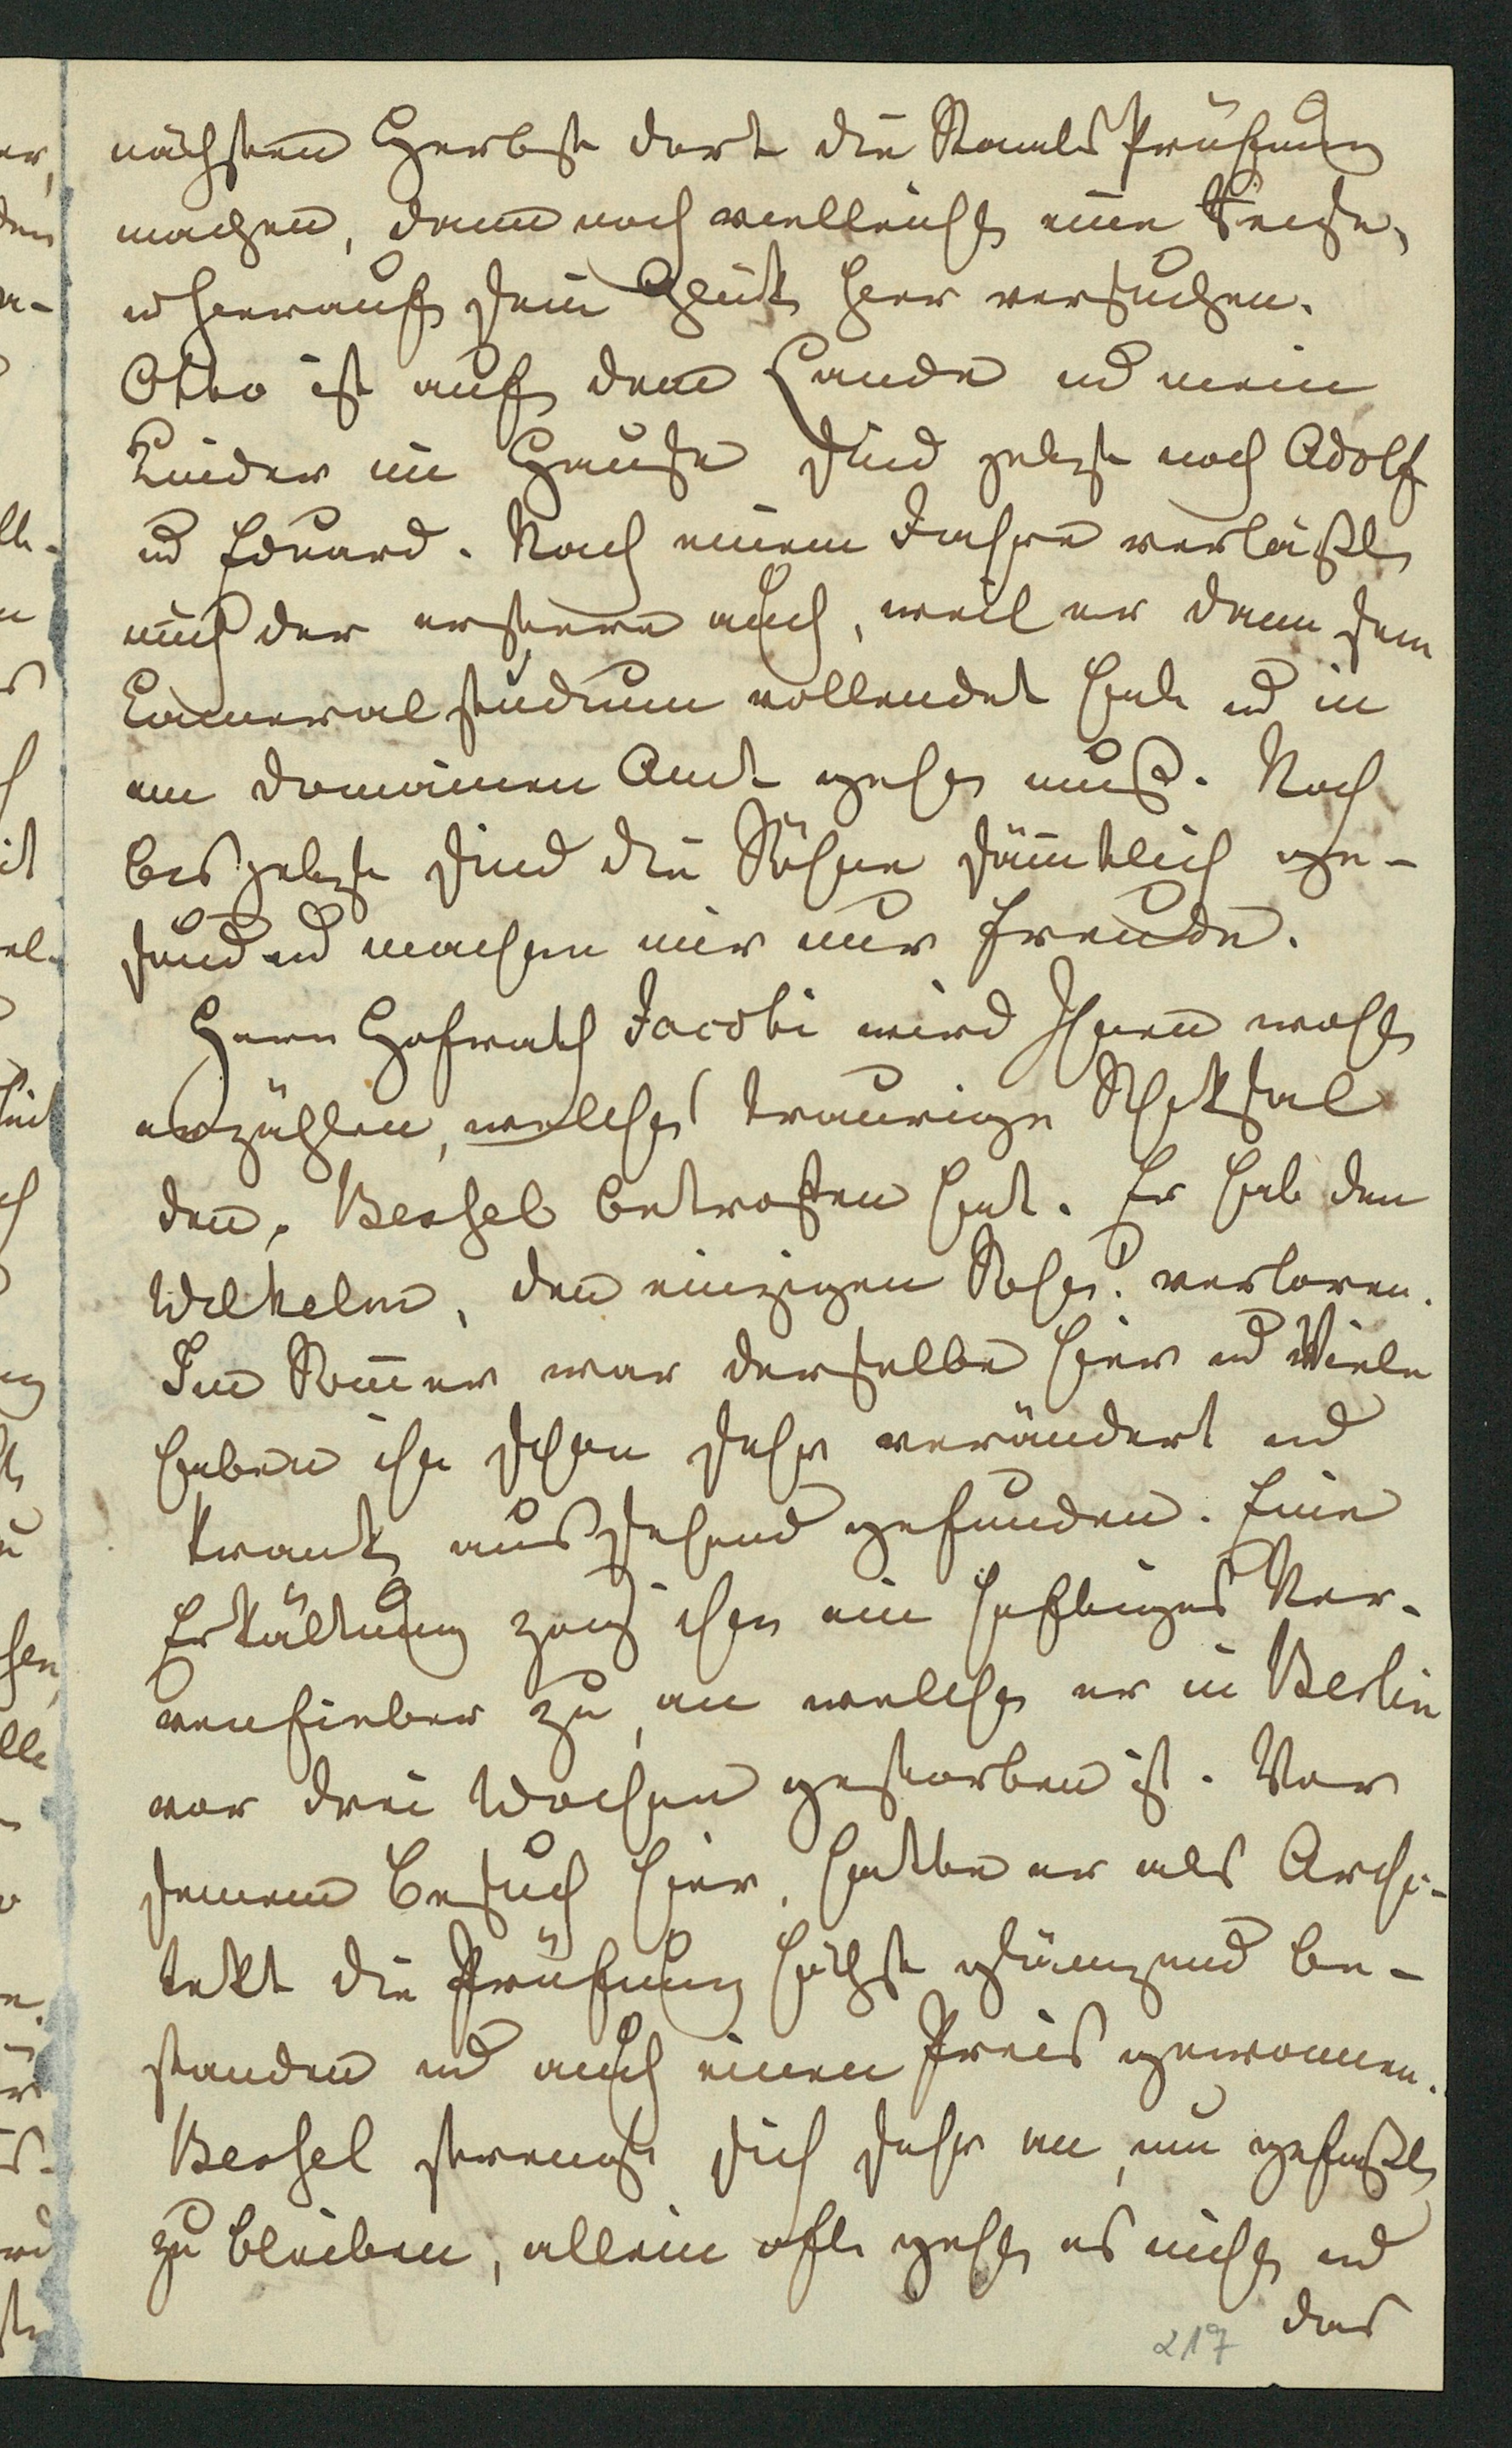 nächsten Herbst dort die Staats Prüfung
machen, dann noch vielleicht eine Reise,
u hierauf sein Glück hier versuchen.
Otto ist auf dem Lande und mein
Kinder im Hause sind jetzt noch Adolf
und Eduard. Nach einem Jahre verläßt
mich der erstere auch, weil er dann sein
Cameralstudium vollendet hat und in
ein Domainen Amt gehen muß. Noch
bis jetzt sind die Söhne sämtlich ge-
sund und machen mir nur Freude.
Herr Hofrath Jacobi wird Ihnen wohl
erzählen, welches traurige Schiksal
den Bessel betroffen hat. Er hat den
Wilhelm, den einzigen Sohn verloren.
Im Sommer war derselbe hier und Viele
haben ihn schon sehr verändert und
krank aussehend gefunden. Eine
Erkältung zog ihm ein heftiges Ner-
venfieber zu, an welchem er in Berlin
vor drei Wochen gestorben ist. Vor
seinem Besuch hier, hatte er als Archi-
tekt die Prüfung höchst glänzend be-
standen und auch einen Preis gewonnen.
Bessel strengt sich sehr an, um gefaßt
zu bleiben, allein oft geht es nicht und
das
217